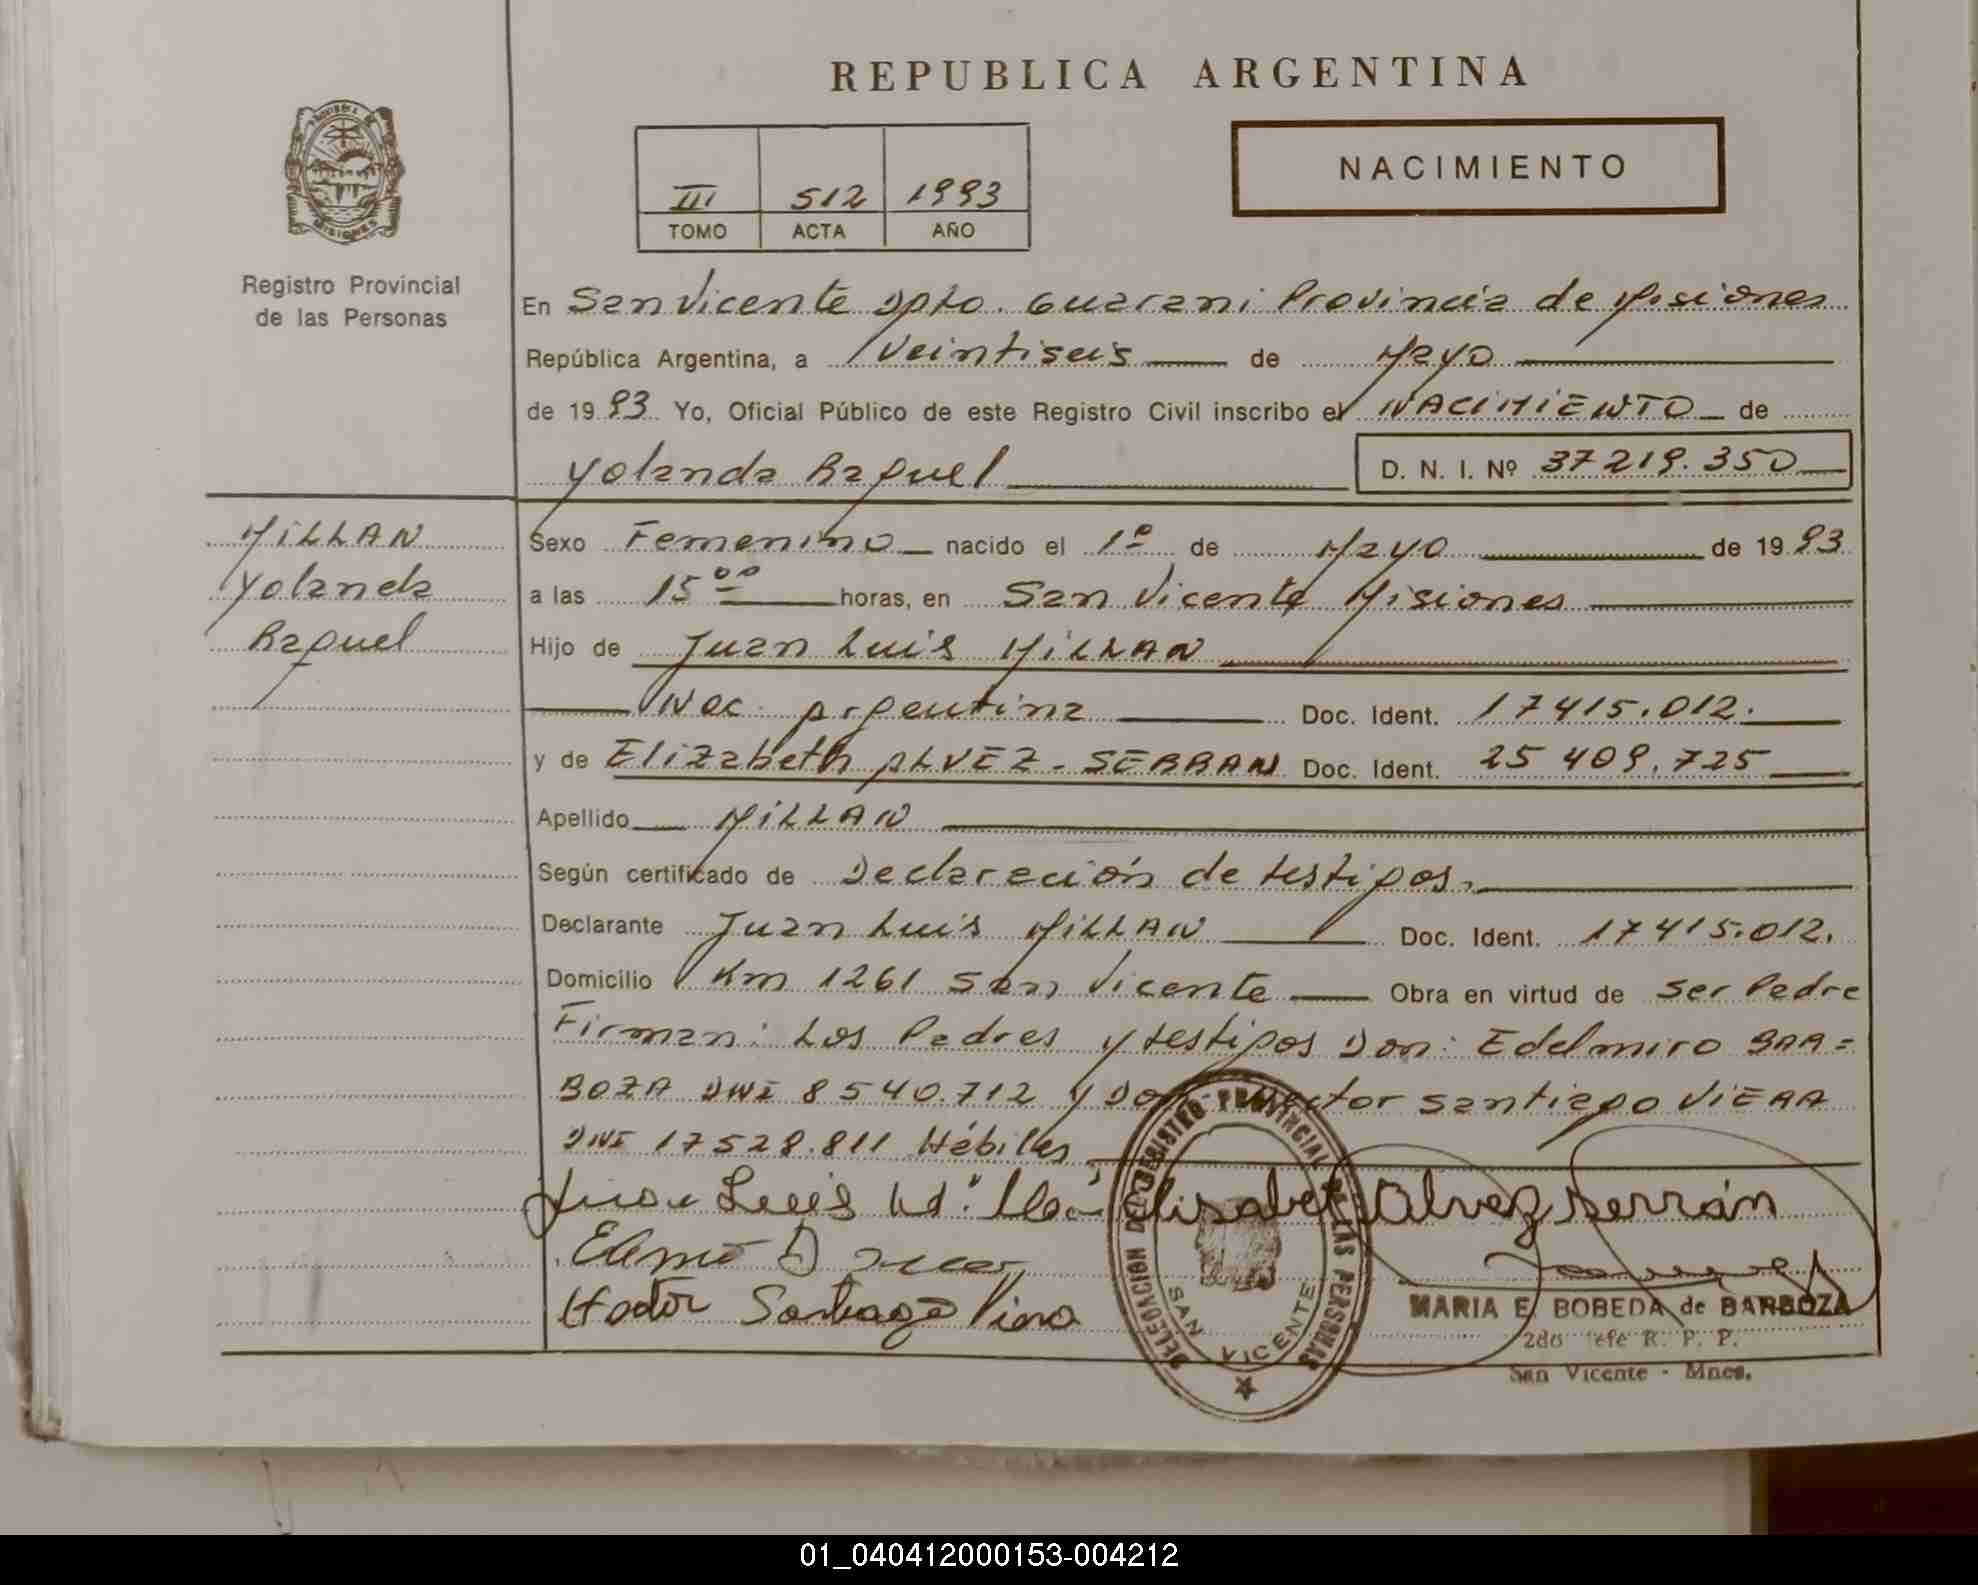 REPUBLICA ARGENTINA
PROVINCIA DE
MISIONES
Registro Provincial
de las Personas
III 512 1993
TOMO ACTA AÑO
NACIMIENTO
En San Vicente Dpto. Guarani Provincia de Misiones
República Argentina, a Veintiseis de Mayo
de 1993 Yo, Oficial Público de este Registro Civil inscribo el NACIMIENTO de
Yolanda Raquel D. N. I. Nº 37219.350
MILLAN
Yolanda
Raquel
Sexo Femenino nacido el 1º de Mayo de 1993
a las 15 00 horas, en San Vicente Misiones
Hijo de Juan Luis MILLAN
Nac. Argentina Doc. Ident. 17415.012.
y de Elizabeth ALVEZ - SERRAN Doc. Ident. 25 409.725
Apellido MILLAN
Según certificado de Declaración de testigos.
Declarante Juan Luis MILLAN Doc. Ident. 17415.012.
Domicilio Km 1261 San Vicente Obra en virtud de ser Padre
Firman: Los Padres y testigos Don: Edelmiro BAR=
BOZA DNI 8540.712 y Don Hector Santiago VIERA
DNI 17528.811 Hábiles
Juan Luis Elisabet Alvez Serrán
Hector Santiago Viera
DELEGACION DEL REGISTRO PROVINCIAL DE LAS PERSONAS
SAN VICENTE
MARIA E. BOBEDA de BARBOZA
2do Jefe R. P. P.
San Vicente - Mnes.
01_040412000153-004212